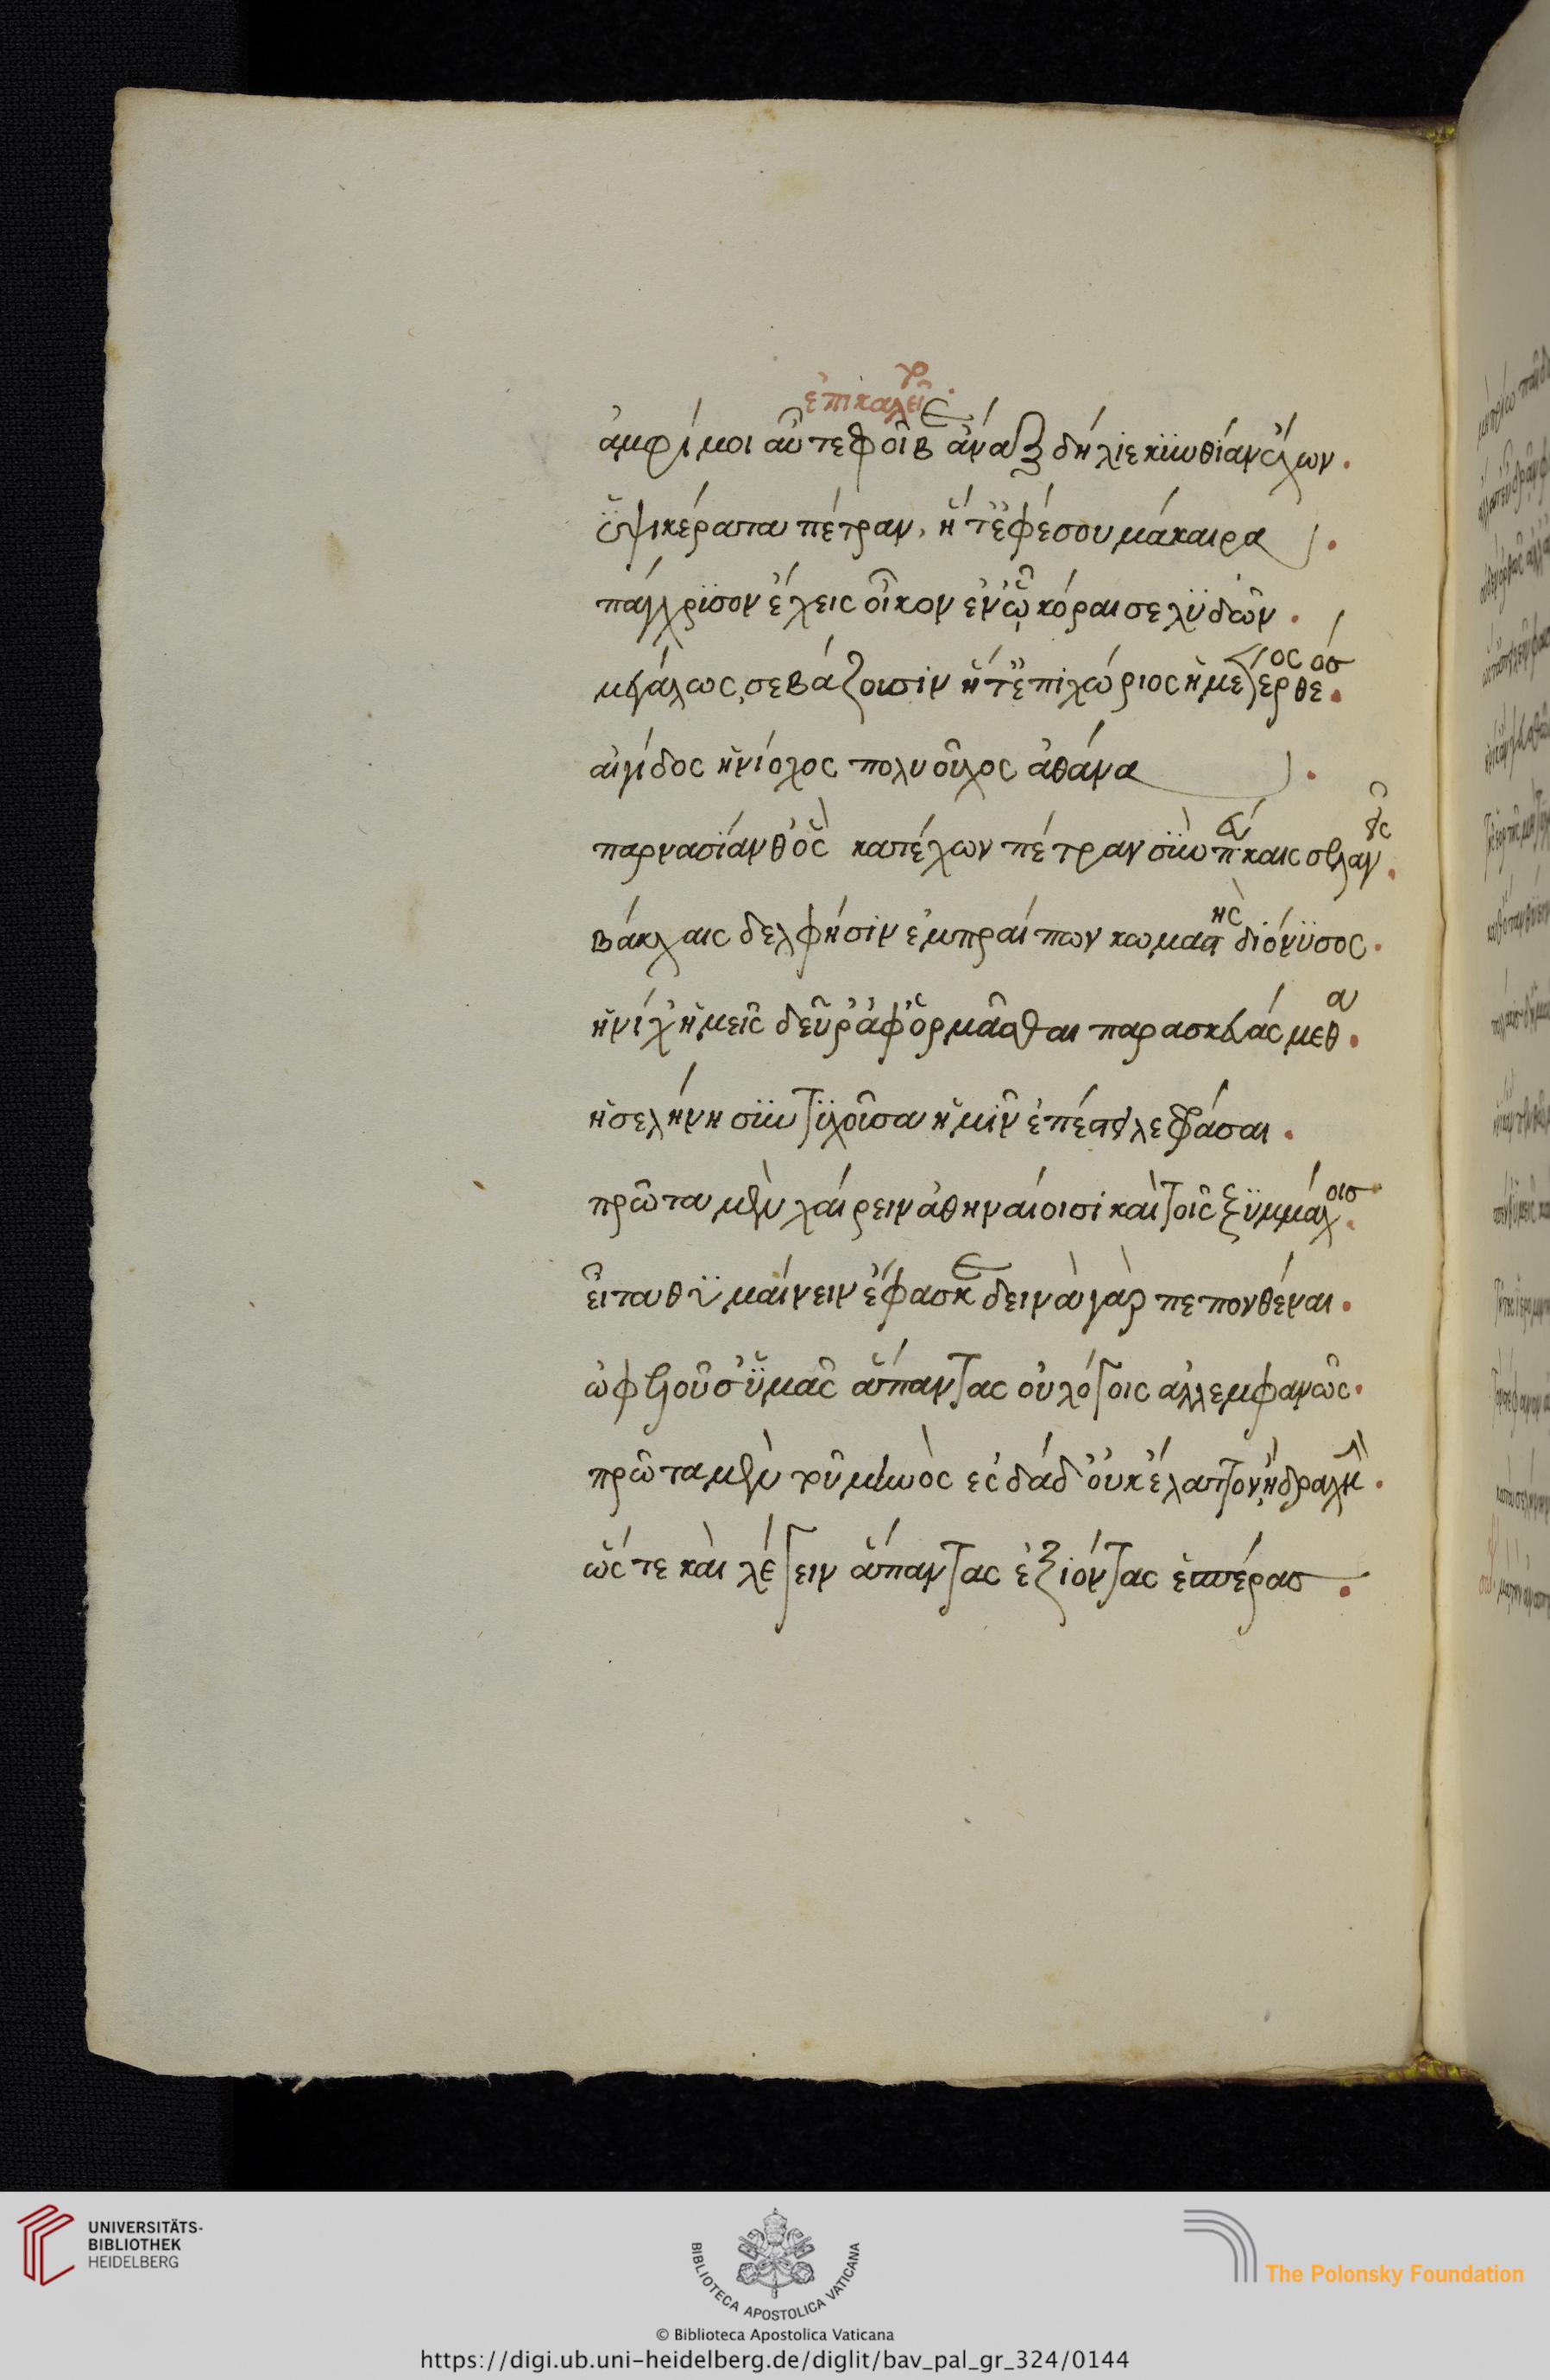 ἐπικαλεῖ.
ἀμφί μοι αὖτε φοῖβε ἄναξ δήλιε κϋνθίαν ἔχων.
ὕψικέρατα πέτραν, ἥ τ' ἐφέσου μάκαιρα.
πάγχρϋσον ἔχεις οἶκον ἐν ᾧ κόραι σε λϋδῶν.
μεγάλως σεβάζουσιν ἥ τ' ἐπιχώριος ἡμετέρ θεός.
αἰγίδος ἡνίοχος πολυοῦχος ἀθάνα.
παρνασίαν θ' ὃς κατέχων πέτραν σϋν πεύκαις σελαγεῖ.
βάκχαις δελφήσιν ἐμπραίπων κωμαστὴς διόνϋσος.
ἡνίχ' ἡμεῖς δεῦρ' ἀφορμᾶσθαι παρασκευάσμεθα.
ἡ σελήνη σϋντϋχοῦσα ἡμῖν ἐπέστειλε φράσαι.
πρῶτα μὲν χαίρειν ἀθηναίοισι καὶ τοῖς ξϋμμάχοις
εἶτα θϋμαίνειν ἔφασκε δεινὰ γὰρ πεπονθέναι.
ὠφελοῦσ' ὑμᾶς ἅπαντας οὐ λόγοις ἀλλ' ἐμφανῶς.
πρῶτα μὲν τοῦ μηνὸς ἐς δᾶδ' οὐκ ἔλαττον ἢ δραχμήν.
ὥς τε καὶ λέγειν ἅπαντας ἐξιόντας ἑσπέρας.
UNIVERSITÄTS-
BIBLIOTHEK
HEIDELBERG
BIBLIOTECA APOSTOLICA VATICANA
The Polonsky Foundation
© Biblioteca Apostolica Vaticana
https://digi.ub.uni-heidelberg.de/diglit/bav_pal_gr_324/0144